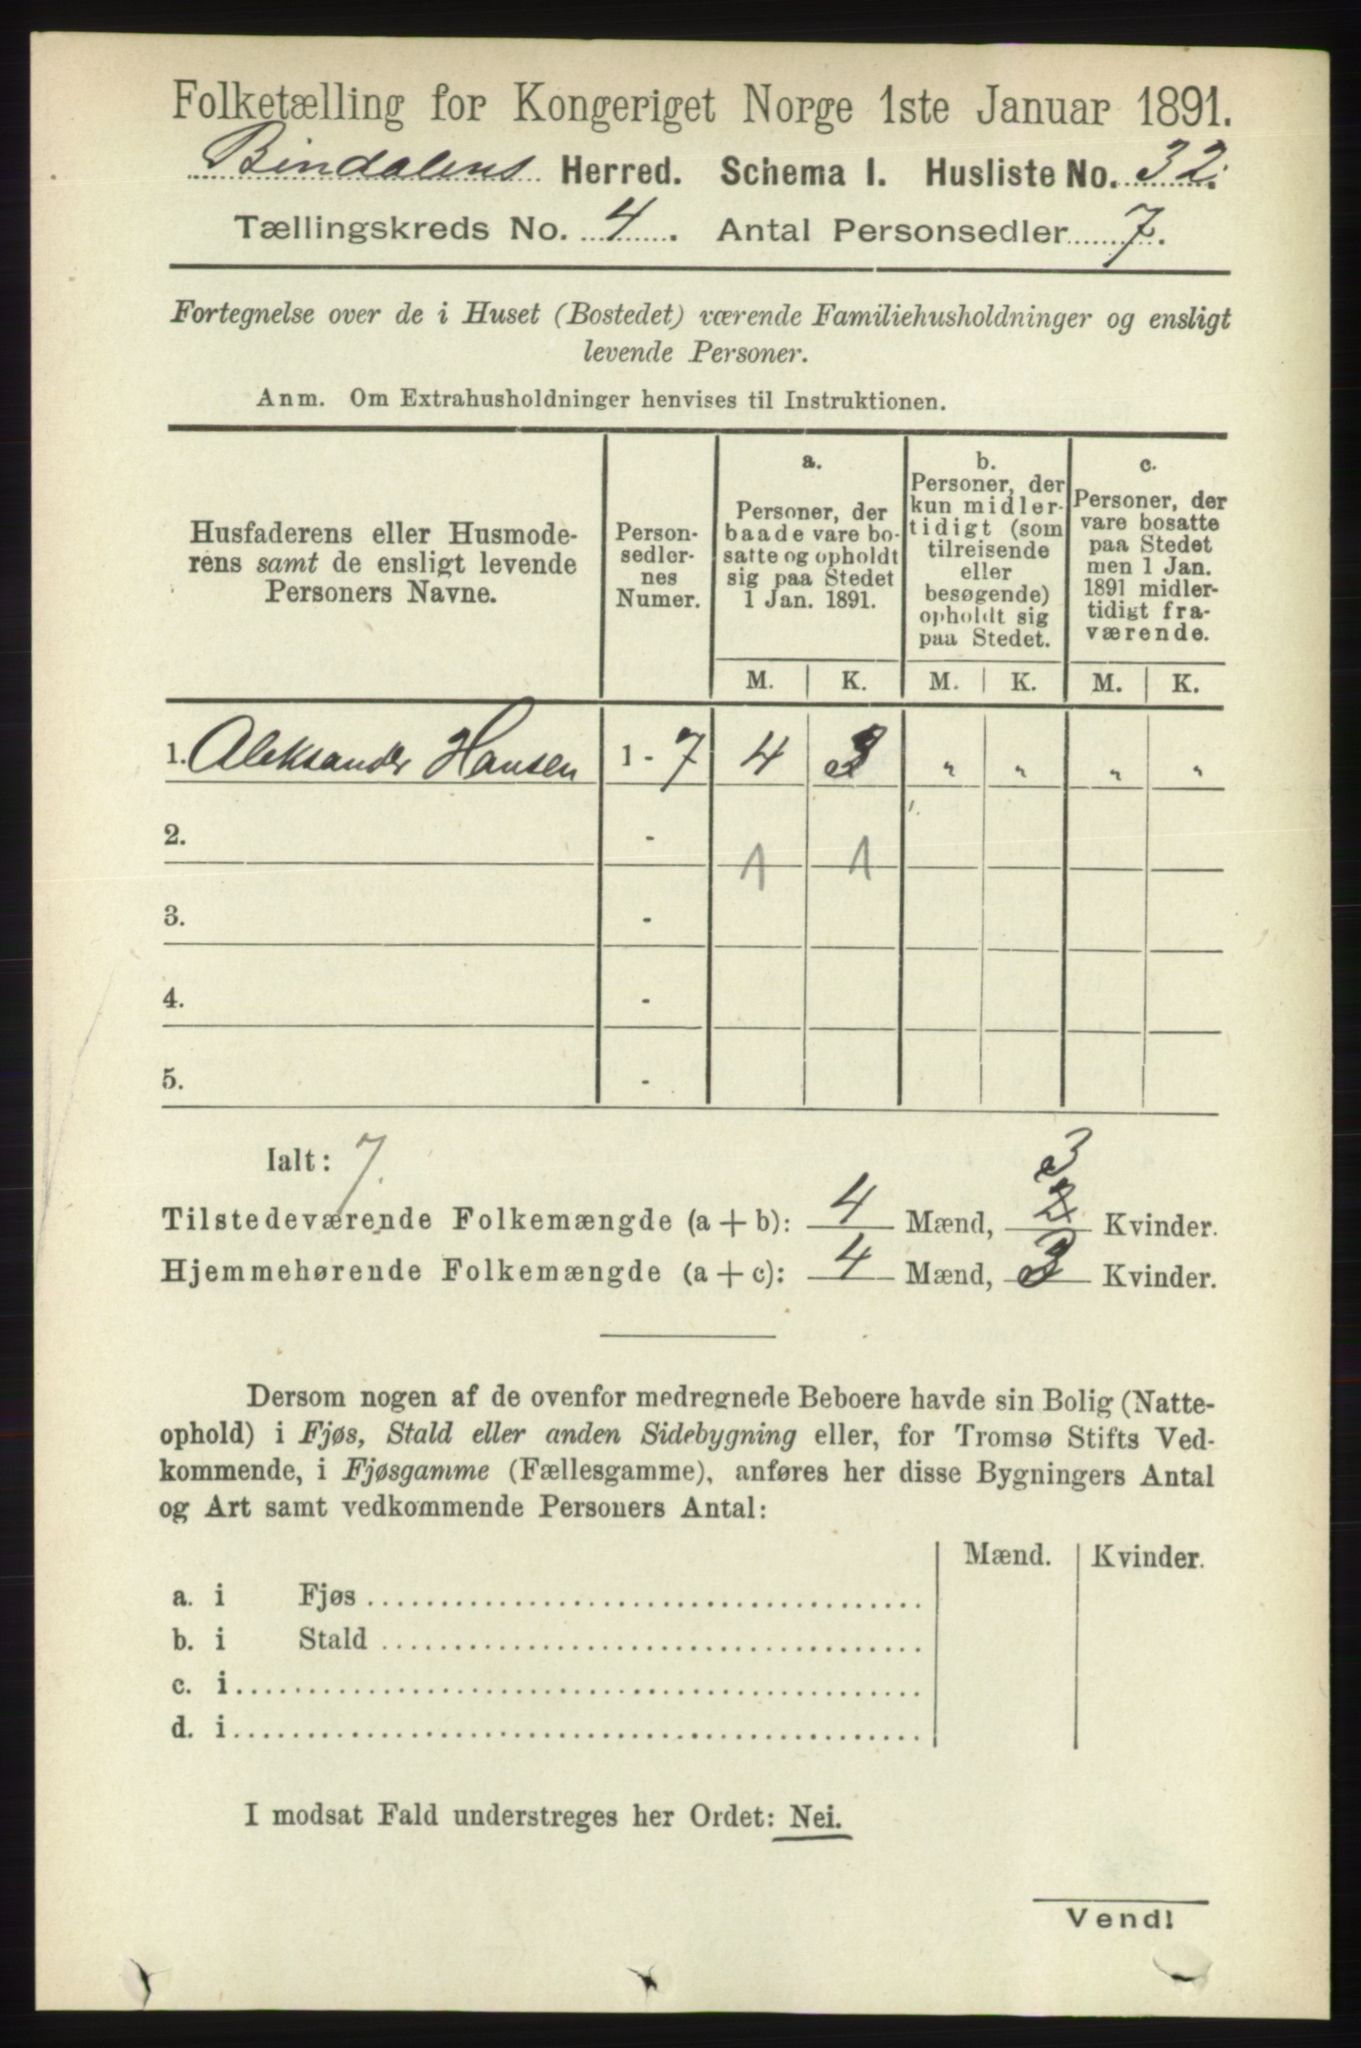 Folketælling for Kongeriget Norge 1ste Januar 1891.
Bindalens Herred. Schema I. Husliste No. 32.
Tællingskreds No. 4. Antal Personsedler 7.
Fortegnelse over de i Huset (Bostedet) værende Familiehusholdninger og ensligt
levende Personer.
Anm. Om Extrahusholdninger henvises til Instruktionen.
Husfaderens eller Husmode-
rens samt de ensligt levende
Personers Navne.
Person-
sedler-
nes
Numer.
a.
Personer, der
baade vare bo-
satte og opholdt
sig paa Stedet
1 Jan. 1891.
b.
Personer, der
kun midler-
tidigt (som
tilreisende
eller
besøgende)
opholdt sig
paa Stedet.
c.
Personer, der
vare bosatte
paa Stedet
men 1 Jan.
1891 midler-
tidigt fra-
værende.
M. K. M. K. M. K.
1. Aleksander Hansen 1 - 7 4 3 " " " "
2. -
1 1
3. -
4. -
5. -
Ialt: 7.
3
Tilstedeværende Folkemængde (a + b): 4 Mænd, 2 Kvinder.
Hjemmehørende Folkemængde (a + c): 4 Mænd, 3 Kvinder.
Dersom nogen af de ovenfor medregnede Beboere havde sin Bolig (Natte-
ophold) i Fjøs, Stald eller anden Sidebygning eller, for Tromsø Stifts Ved-
kommende, i Fjøsgamme (Fællesgamme), anføres her disse Bygningers Antal
og Art samt vedkommende Personers Antal:
Mænd. Kvinder.
a. i Fjøs
b. i Stald
c. i
d. i
I modsat Fald understreges her Ordet: Nei.
Vend!